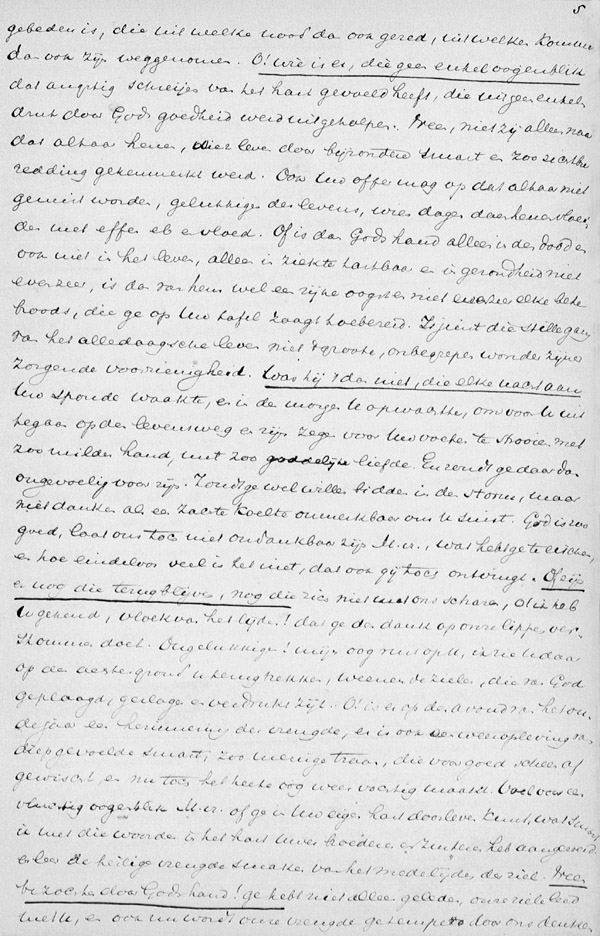 5
gebeden is, die uit welke nood dan ook gered, uit welken kommer
dan ook zijt weggenomen. O! wie is er, die geen enkel oogenblik
dat angstig schreijen van het hart gevoeld heeft, die uit geen enkelen
druk door Gods goedheid werd uitgeholpen. Neen, niet zij alleen naar
dat altaar henen, wier leven door bijzondere smart en zoo zichtbre
redding gekenmerkt werd. Ook Uw offer mag op dat altaar niet
gemist worden, gelukkigen des levens, wier dagen daar henen vloei
den met effen eb en vloed. Of is dan Gods hand alleen in den dood en
ook niet in het leven, alleen in ziekte tastbaar en in gezondheid niet
evenzeer, is dan van hem wel een rijke oogst en niet elke bete
broods, die ge op Uw tafel zaagt toebereid. Is juist die stille gang
van het alledaagsche leven niet 't groote, onbegrepen wonder zijner
zorgende voorzienigheid. Was hij 't dan niet, die elke nacht aan
Uw sponde waakte, en in de morgen U opwachtte, om voor U uit
te gaan op den levensweg en zijn zegen voor Uw voeten te strooien met
zoo milde hand, met zoo goddelijke liefde. En zoudt ge daar dan
ongevoelig voor zijn. Zoudt ge wel willen bidden in den storm, maar
niet danken als een zachte koelte onmerkbaar om U suist. God is zoo
goed, laat ons toch niet ondankbaar zijn M.v., wat hebt ge te eischen,
en hoe eindeloos veel is het niet, dat ook gij toch ontvingt. Of zijn
er nog die terugblijven, nog die zich niet met ons scharen, O! ik heb
U gekend, vloek van het lijden! dat ge den dank op onze lippen ver-
stommen doet. Ongelukkigen! mijn oog rust op U, ik zie U daar
op de achtergrond U terugtrekken, weenende zielen, die van God
geplaagd, geslagen en verdrukt zijt. O! is er op den avond van het ou-
de jaar een herinnering der vreugde, er is ook een weeropleving van
diep gevoelde smart, zoo menige traan, die voor goed scheen af
gewischt, en nu toch het heete oog weer vochtig maakt. Voel voor een
vluchtig oogenblik M.v. of ge in Uw eigen hart doorleven kunt, wat smart
ik met die woorden in het hart uwer broederen en zusteren heb aangeroerd
en leer de heilige vreugde smaken van het medelijden der ziel. Neen
bezochten door Gods hand! ge hebt niet alleen geleden, onze ziel leed
met U, en ook nu wordt onze vreugde getemperd door ons denken